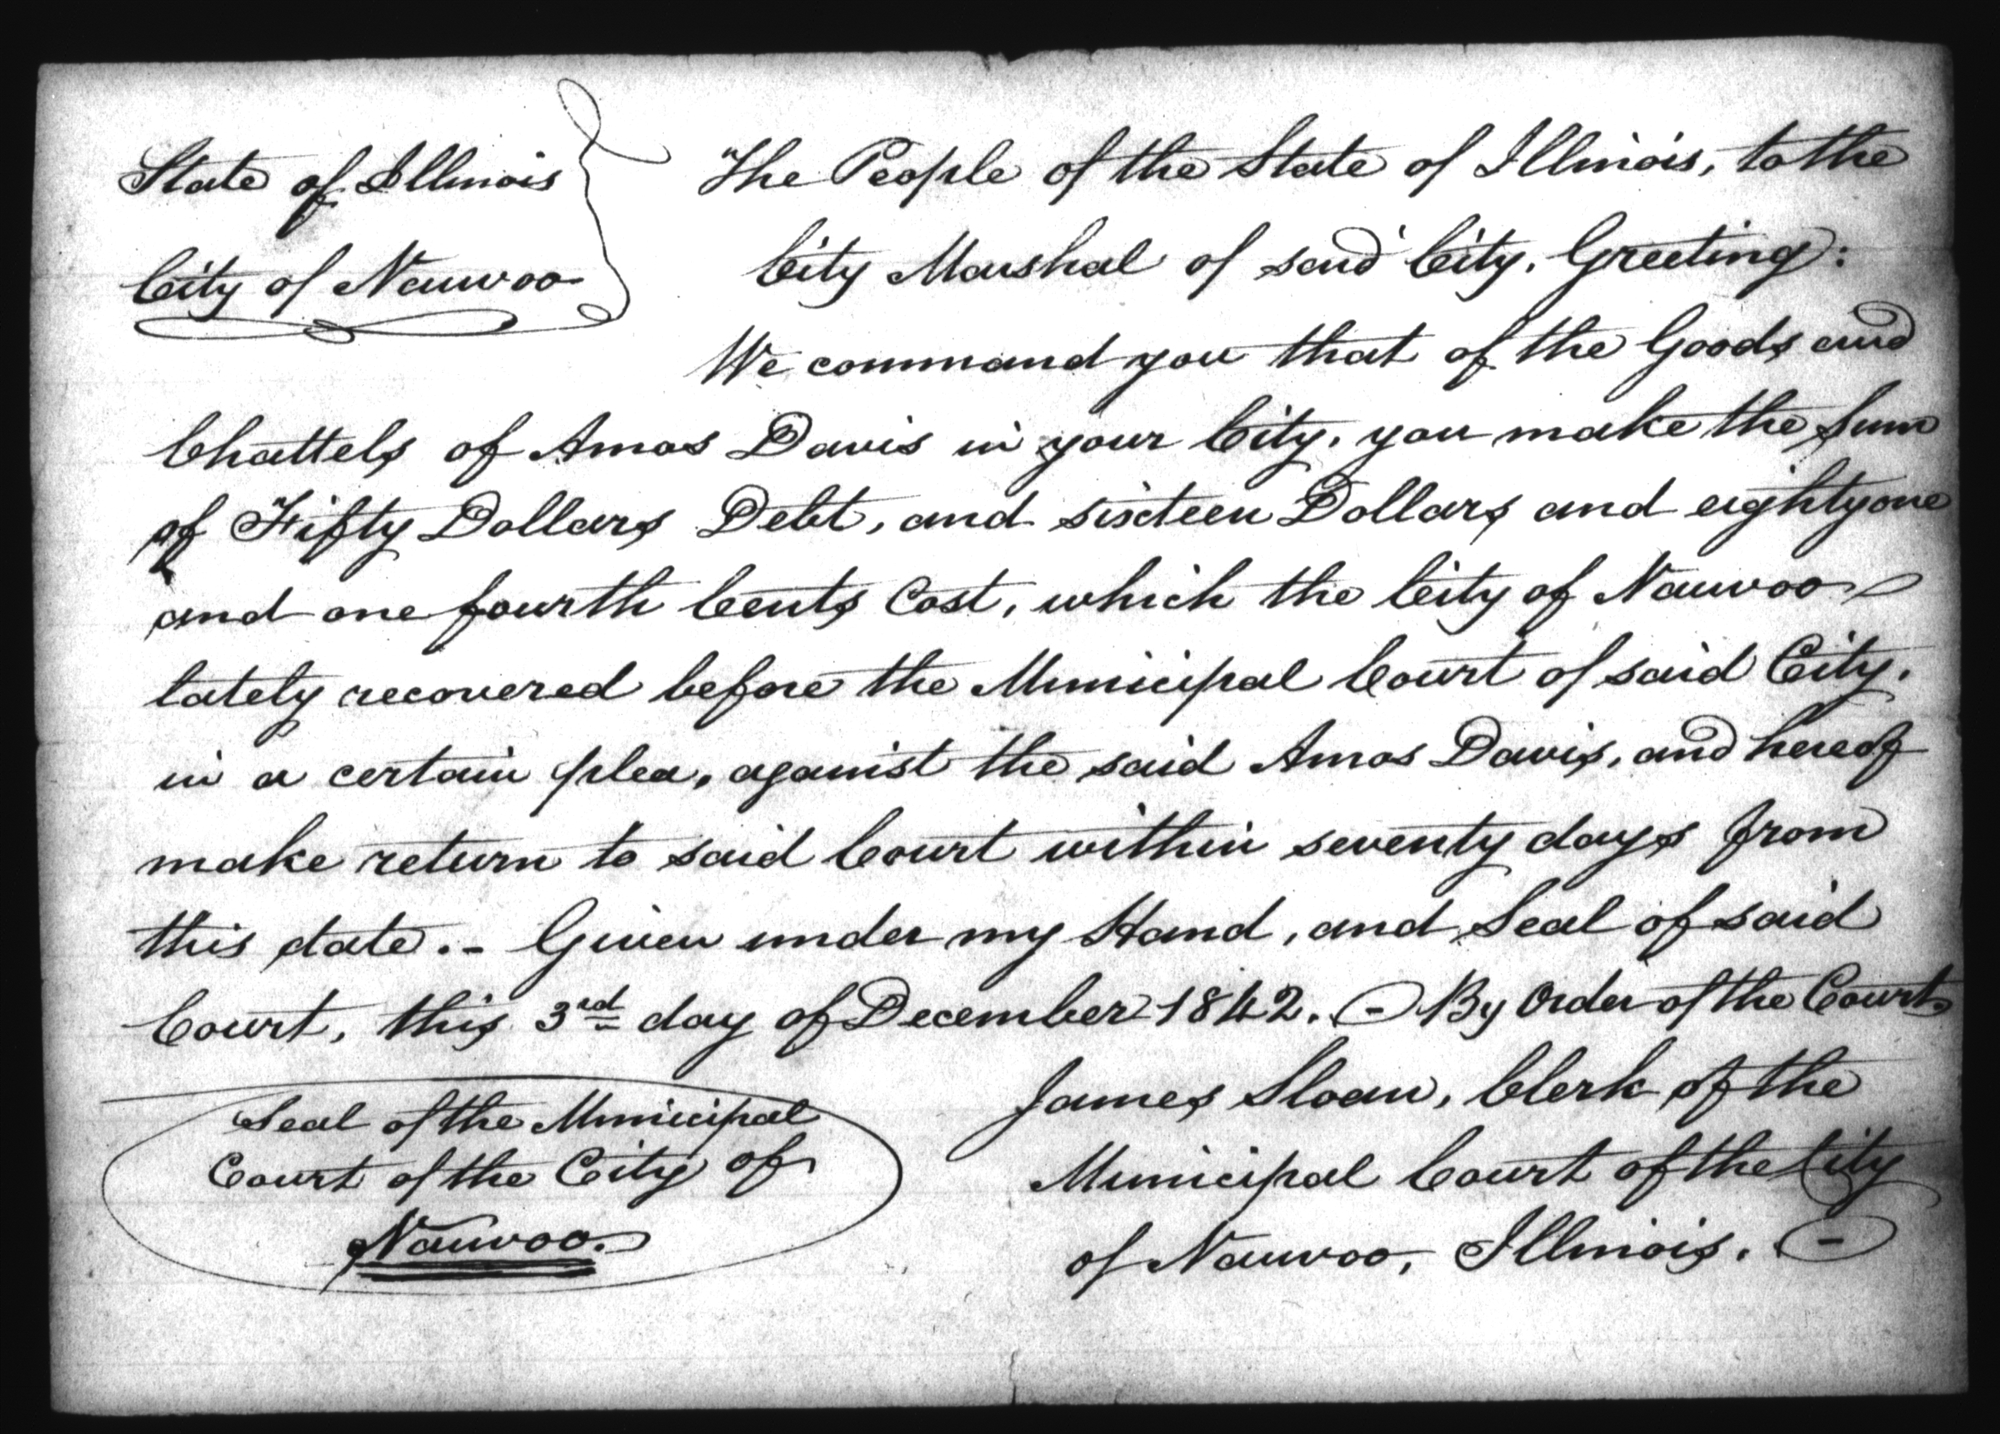 State of Illinois
City of Nauvoo
The People of the State of Illinois, to the
City Marshal of said City. Greeting:
We command you that of the Goods and
Chattels of Amos Davis in your City, you make the Sum
of Fifty Dollars Debt, and sixteen Dollars and eighty one
and one fourth Cents Cost, which the City of Nauvoo
lately recovered before the Municipal Court of said City,
in a certain plea, against the said Amos Davis, and hereof
make return to said Court within seventy days from
this date. - Given under my Hand, and Seal of said
Court, this 3rd day of December 1842. - By Order of the Court.
Seal of the Municipal
Court of the City of
Nauvoo.
James Sloan, Clerk of the
Municipal Court of the City
of Nauvoo, Illinois. -